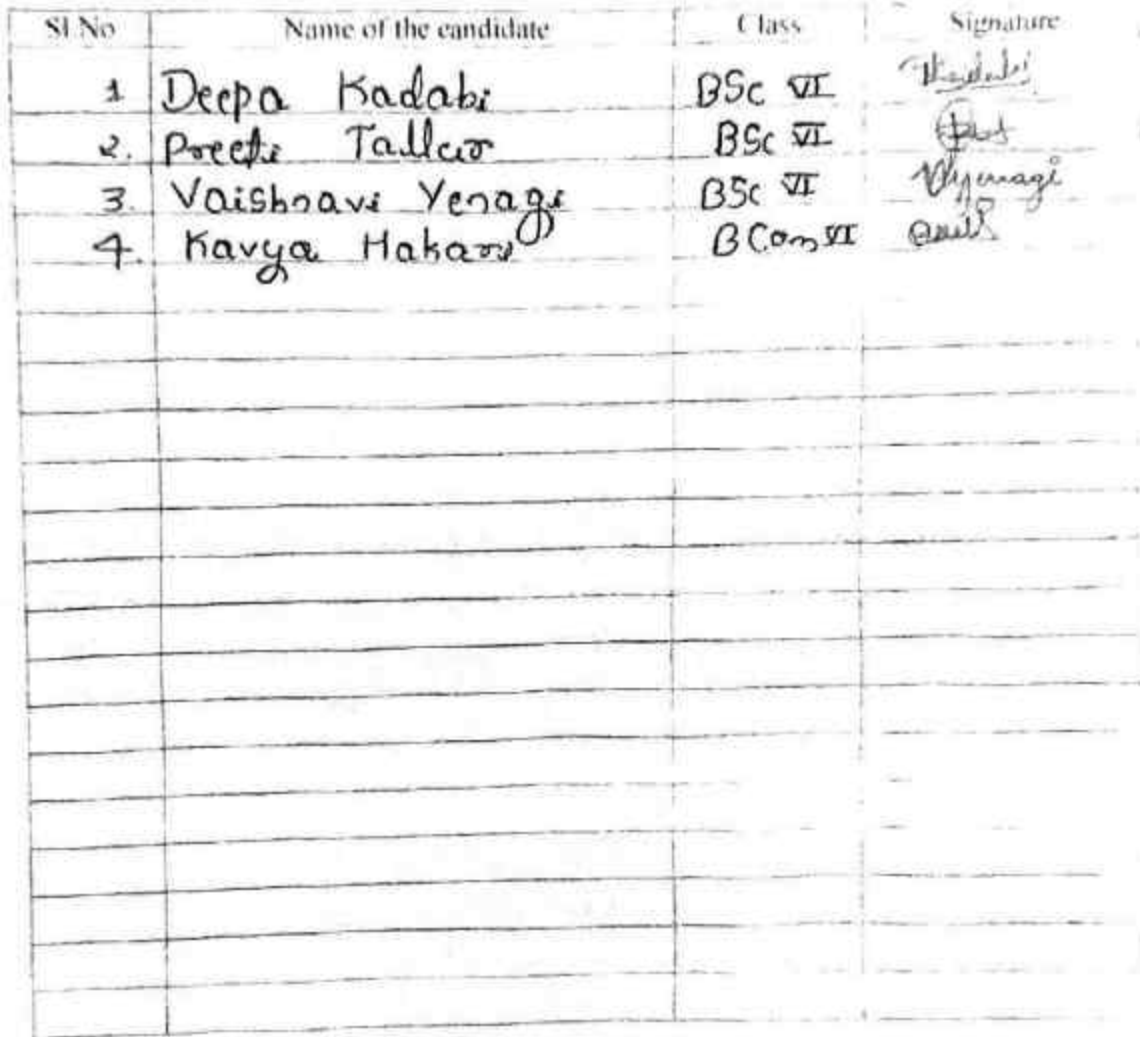 Sl No Name of the candidate Class Signature
1 Deepa Kadabi BSc VI
2. Preeti Tallur BSc VI
3. Vaishnavi Yenagi BSc VI Vyenagi
4. Kavya Hakari BCom VI